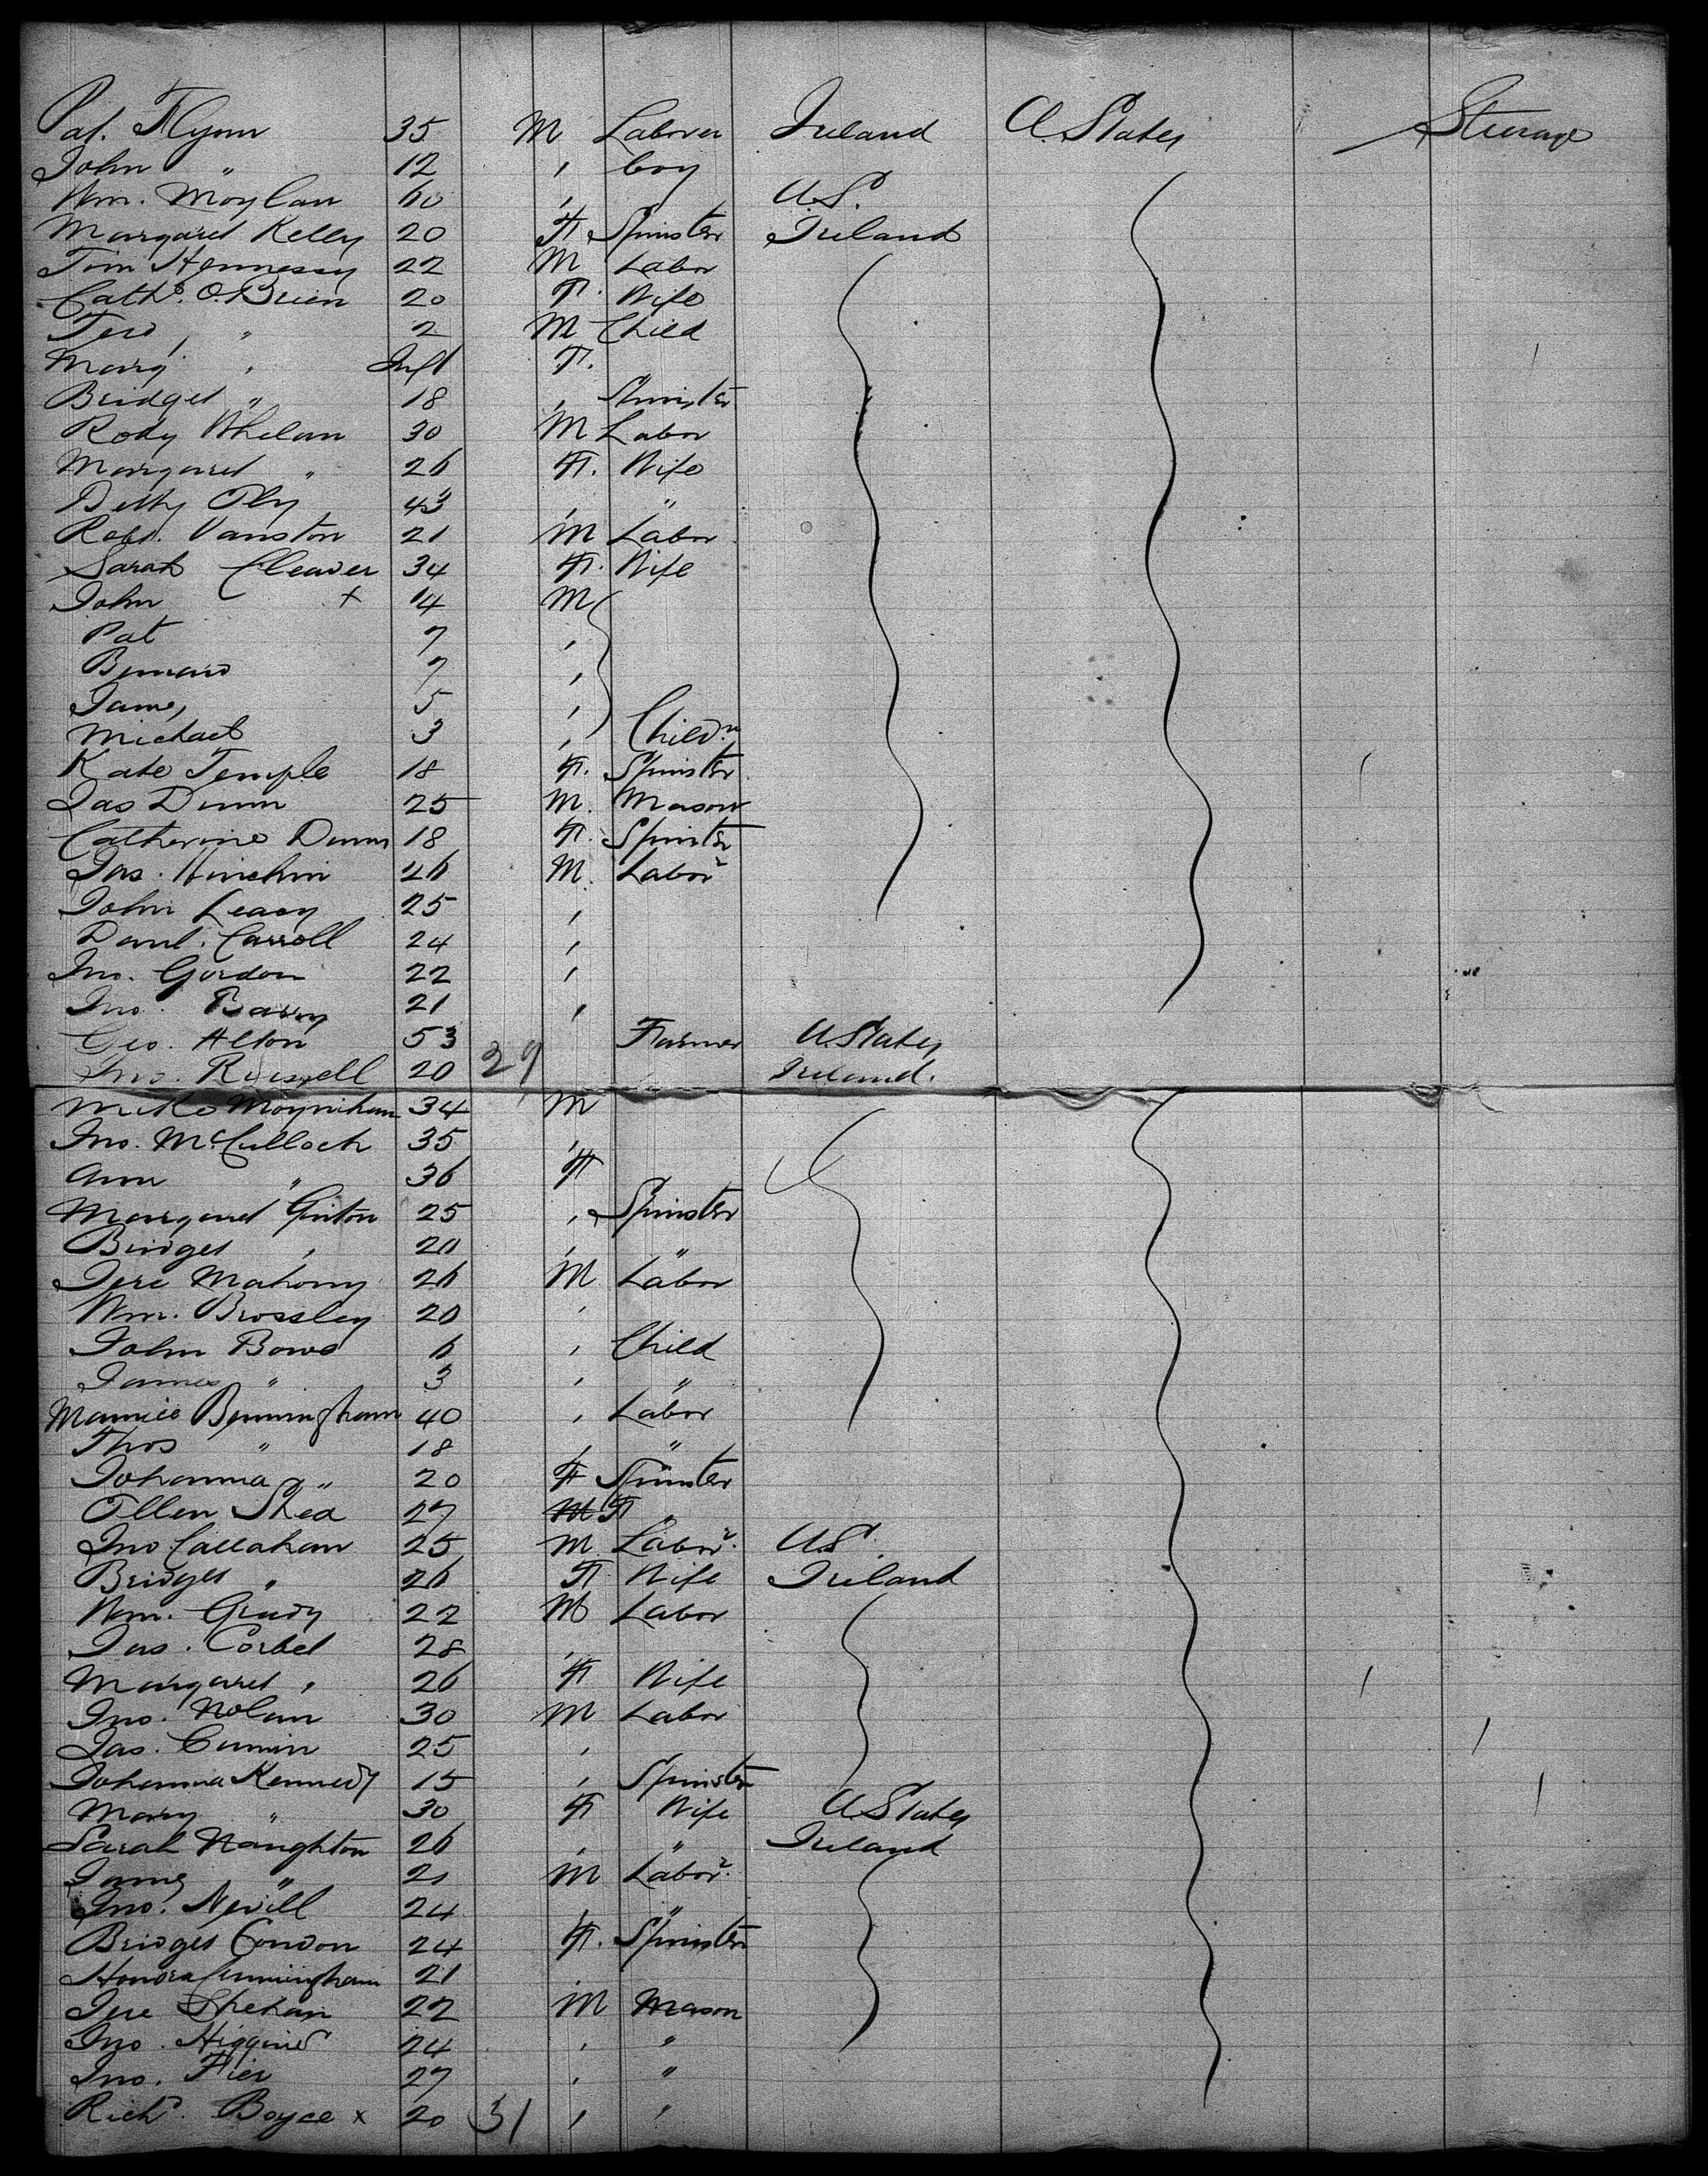 Pat. Flynn 35 M Laborer Ireland U. States Steerage
John " 12 , boy
Wm. Moylan 60 , U.S.
Margaret Kelly 20 F Spinster Ireland
Tim Hennessy 22 M Labor
Cath. O.Brien 20 F. Wife
" 2 M Child
Mary " Inft F.
Bridget " 18 , Spinster
Rody Whelan 30 M Labor
Margaret " 26 F. Wife
43 , "
Robt. Vanston 21 M Labor
Sarah Cleaver 34 F. Wife
John x 14 M
Pat 7 ,
Bernard 7 ,
James 5 ,
Michael 3 , Childn
Kate Temple 18 F. Spinster
Jas Dunn 25 M. Mason
Catherine Dunn 18 F. Spinster
Jas. 46 M. Labor
John Leary 25 ,
Danl. Carroll 24 ,
Jno. Gordon 22 ,
Jno. Barry 21 ,
Geo. Alton 53 Farmer U. States
Jno. Russell 20 29 Ireland.
Mike Moynihan 34 M
Jno. McCulloch 35 ,
Ann " 36 F
Margaret 25 , Spinster
Bridget , 20 , "
Jere Mahony 26 M Labor
Wm. Brossley 20 ,
John Bowe 6 , Child
James " 3 , "
Maurice Bermingham 40 , Labor
Thos " 18 , "
Johanna " 20 F Spinster
Ellen Shea 27 M F "
Jno Callahan 25 M Labor. U.S.
Bridget " 26 F Wife Ireland
Wm. Grady 22 M Labor
Jas. Corbet 28 ,
Margaret , 26 F Wife
Jno. Nolan 30 M Labor
Jas. 25 ,
Johanna Kennedy 15 , Spinster
Mary " 30 F Wife U States
Sarah Naughton 26 , " Ireland
James " 21 M Labor.
Jno. Nevill 24 , "
Bridget Condon 24 F. Spinster
Honora Cunningham 21
Jere Shehan 22 M Mason
Jno. Higgins 24 , "
Jno. Fier 27 , "
Richd. Boyce x 20 31 , "